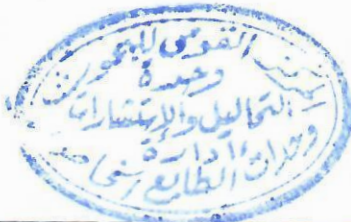 القومى للبحوث
وحدة
التحاليل والإستشارات
إدارة
وحدات الطابع